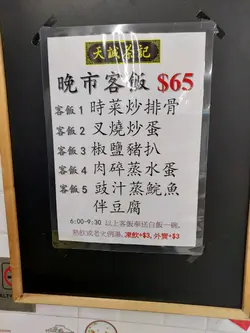 天誠茶記
晚市客飯 $65
客飯1 時菜炒排骨
客飯2 叉燒炒蛋
客飯3 椒鹽豬扒
客飯4 肉碎蒸水蛋
客飯5 豉汁蒸鯇魚
伴豆腐
6:00-9:30 以上客飯奉送白飯一碗,
熱飲或老火例湯, 凍飲+$3, 外賣+$3